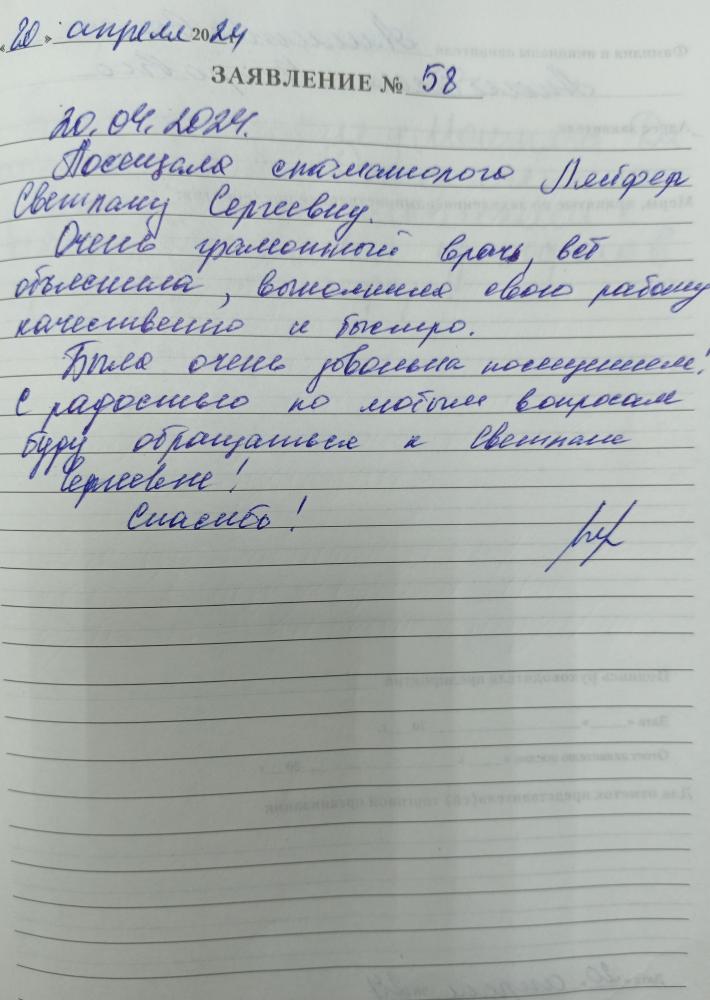 «20» апреля 2024
ЗАЯВЛЕНИЕ № 58
20.04.2024.
Посещала стоматолога Ляйфер
Светлану Сергеевну.
Очень грамотный врач, всё
объяснила, выполнила свою работу
качественно и быстро.
Была очень довольна посещением!
С радостью по любым вопросам
буду обращаться к Светлане
Сергеевне!
Спасибо!